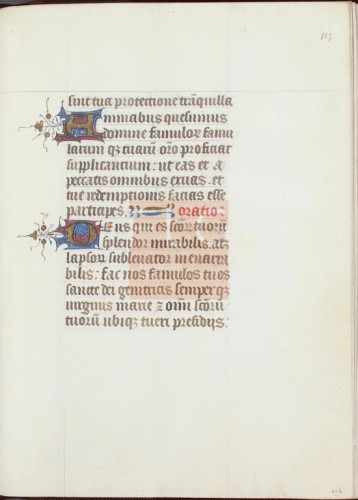 113
sint tua protectione tranquilla
Animabus quesumus
domine famulor famu
larum qz tuarū oro proficiat
supplicantium: ut eas et a
peccatis omnibus exuas. et
tue redemptionis facias esse
participes. oratio:
Deus qui es scōrū tuorū
splendor mirabilis. atz
lapsor sublevator inenarra
bilis: fac nos famulos tuos
sancte dei genitricis semper qz
virginis marie z omī scōrū
tuorū ubiqz tueri presidijs: